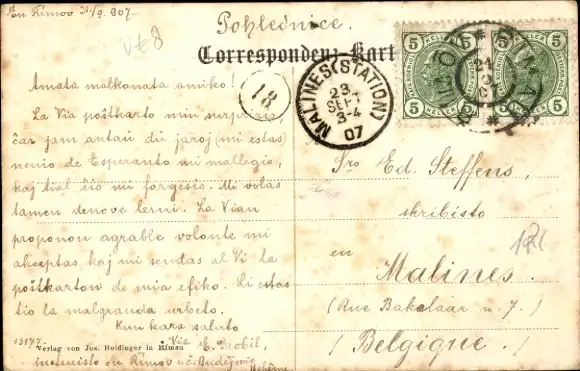 en Římov 21/9. 907.
Pohlednice.
Correspondenz-Karte
Amata malkonata amiko!
La Via poŝtkarto min surprizis,
ĉar jam antaŭ du jaroj (mi estas
nenio de Esperanto mi mallegis,
kaj tial ĉio mi forgesis. Mi volas
tamen denove lerni. La Vian
proponon agrable volonte mi
akceptas kaj mi sendas al Vi la
poŝtkarton de mia
Li estas
tio la malgranda urbeto.
Kun kara saluto
Via E. Drobil,
en Římov u Č. Budějovic
Bohême
13177. Verlag von Jos. Heidinger in Rimau
18
MALINES (STATION)
23
SEPT
3-4
07
5 5 5 5
HELLER HELLER
5 5 5 5
21
9
07
Sro Ed. Steffens,
skribisto
en
Malines.
(Rue Bakelaar n. 7.)
(Belgique.)